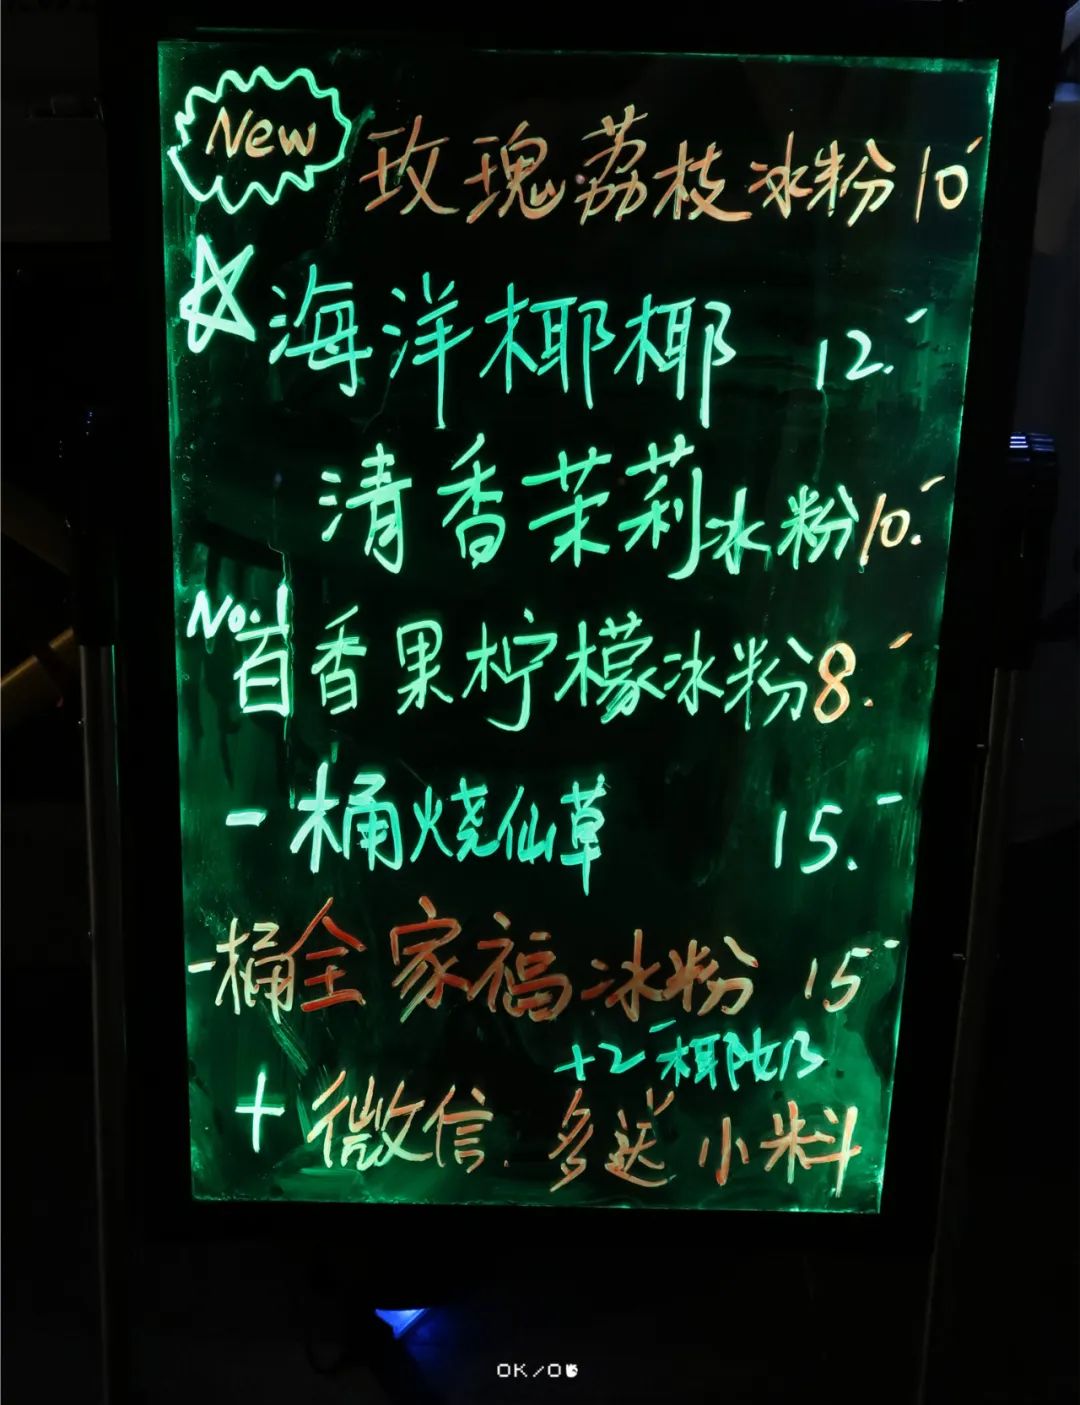 New 玫瑰荔枝冰粉 10
海洋椰椰 12.
清香茉莉冰粉 10.
No.1 百香果柠檬冰粉 8.
一桶烧仙草 15.
一桶全家福冰粉 15
+2 椰奶
+微信. 多送小料
OK/O